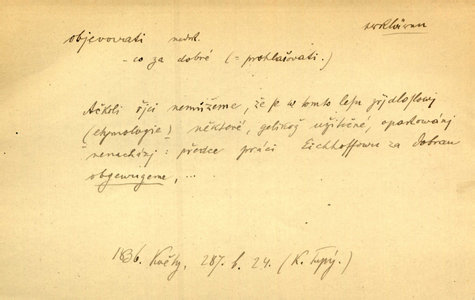 erklären
objevovati nedok.
- co za dobré (= prohlašovati.)
Ačkoli řjci nemůžeme, že se w tomto
(etymologie) některé, gelikož užitečné, opakowánj
nenacházj: předce práci Eichhoffowu za dobrau
obgewugeme, ...
1836. Květy, 287. b. 24. (K. Tupý.)